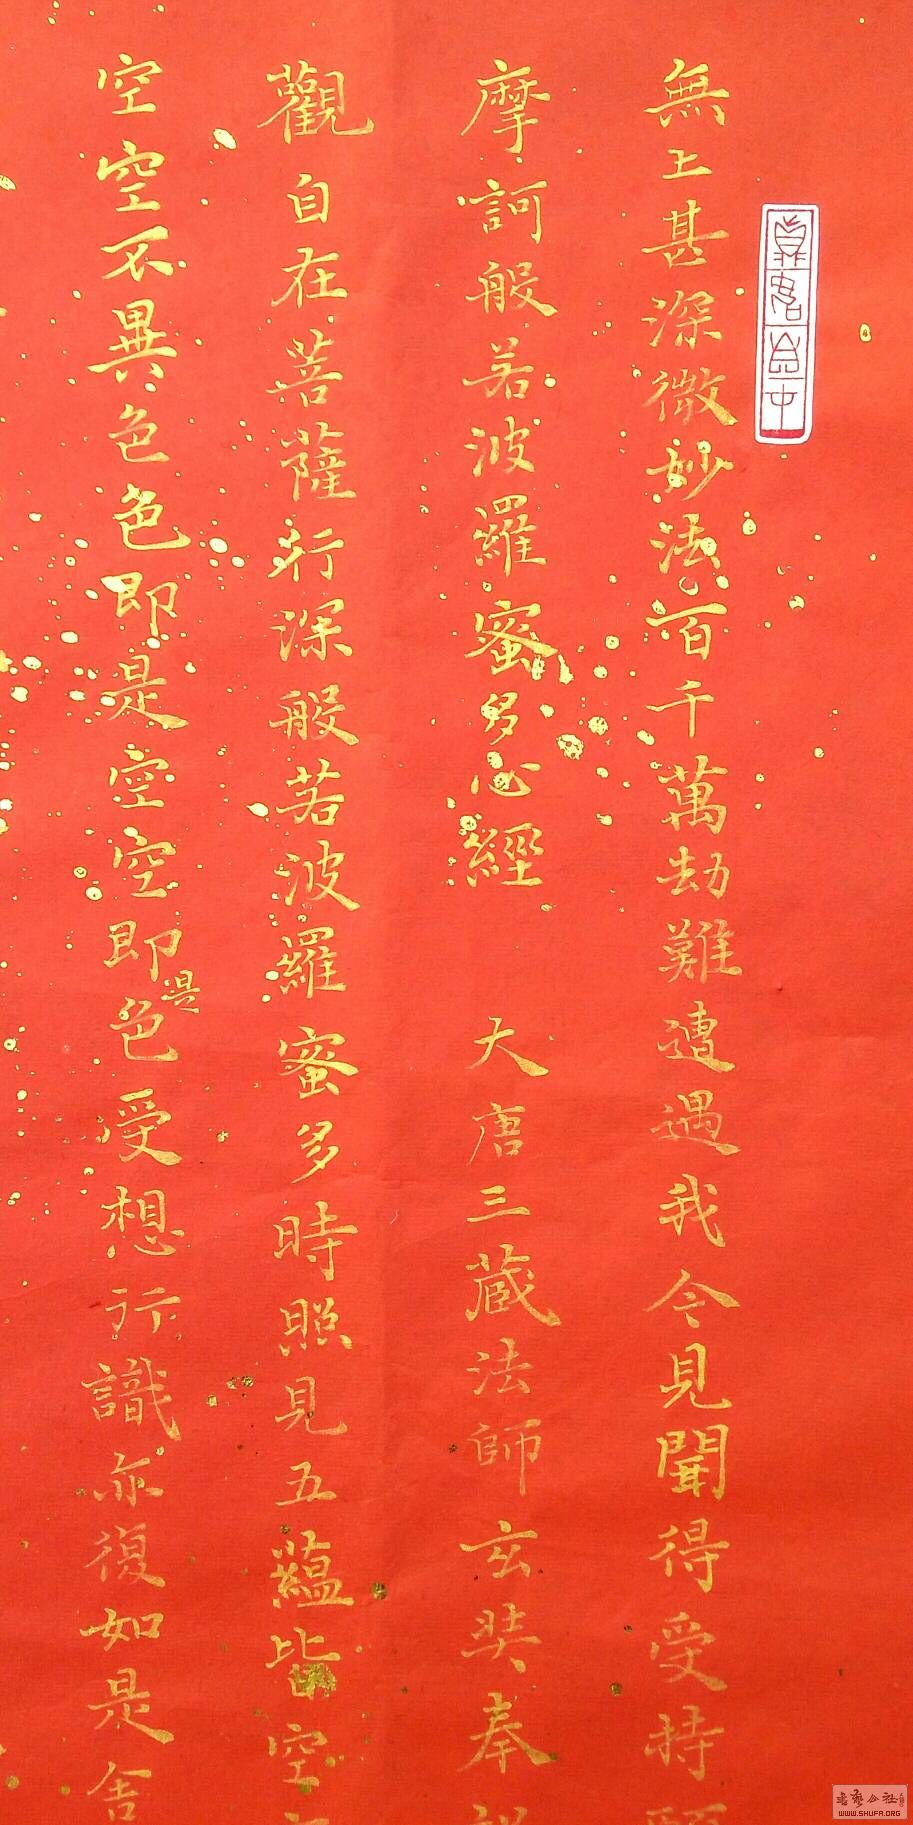 無上甚深微妙法百千萬劫難遭遇我今見聞得受持願
摩訶般若波羅蜜多心經 大唐三藏法師玄奘奉
觀自在菩薩行深般若波羅蜜多時照見五蘊皆空
空空不異色色即是空空即是色受想行識亦復如是舍
書藝公社
WWW.SHUFA.ORG